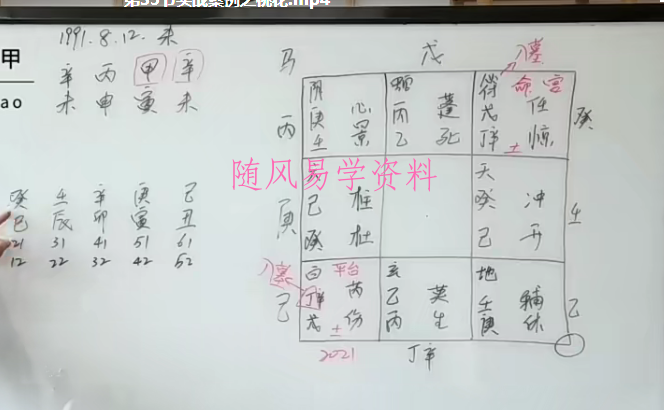 第35节实战案例之桃花.mp4
甲
ao
1991.8.12.未
辛 丙 甲 辛
未 申 寅 未
癸 壬 辛 庚 己
巳 辰 卯 寅 丑
21 31 41 51 61
12 22 32 42 52
马 戊 入墓
阴 心
庚
壬 景
丙 蓬
乙 死
符 命宫
戊 任
丁辛 土 惊
丙 癸
随风易学资料
己 柱
癸 杜
天
癸 冲
己 开
庚 壬
入墓
白 平台
丁辛 芮
戊 土 伤
玄
乙 英
丙 生
地
壬 辅
庚 休
己 乙
2021 丁辛